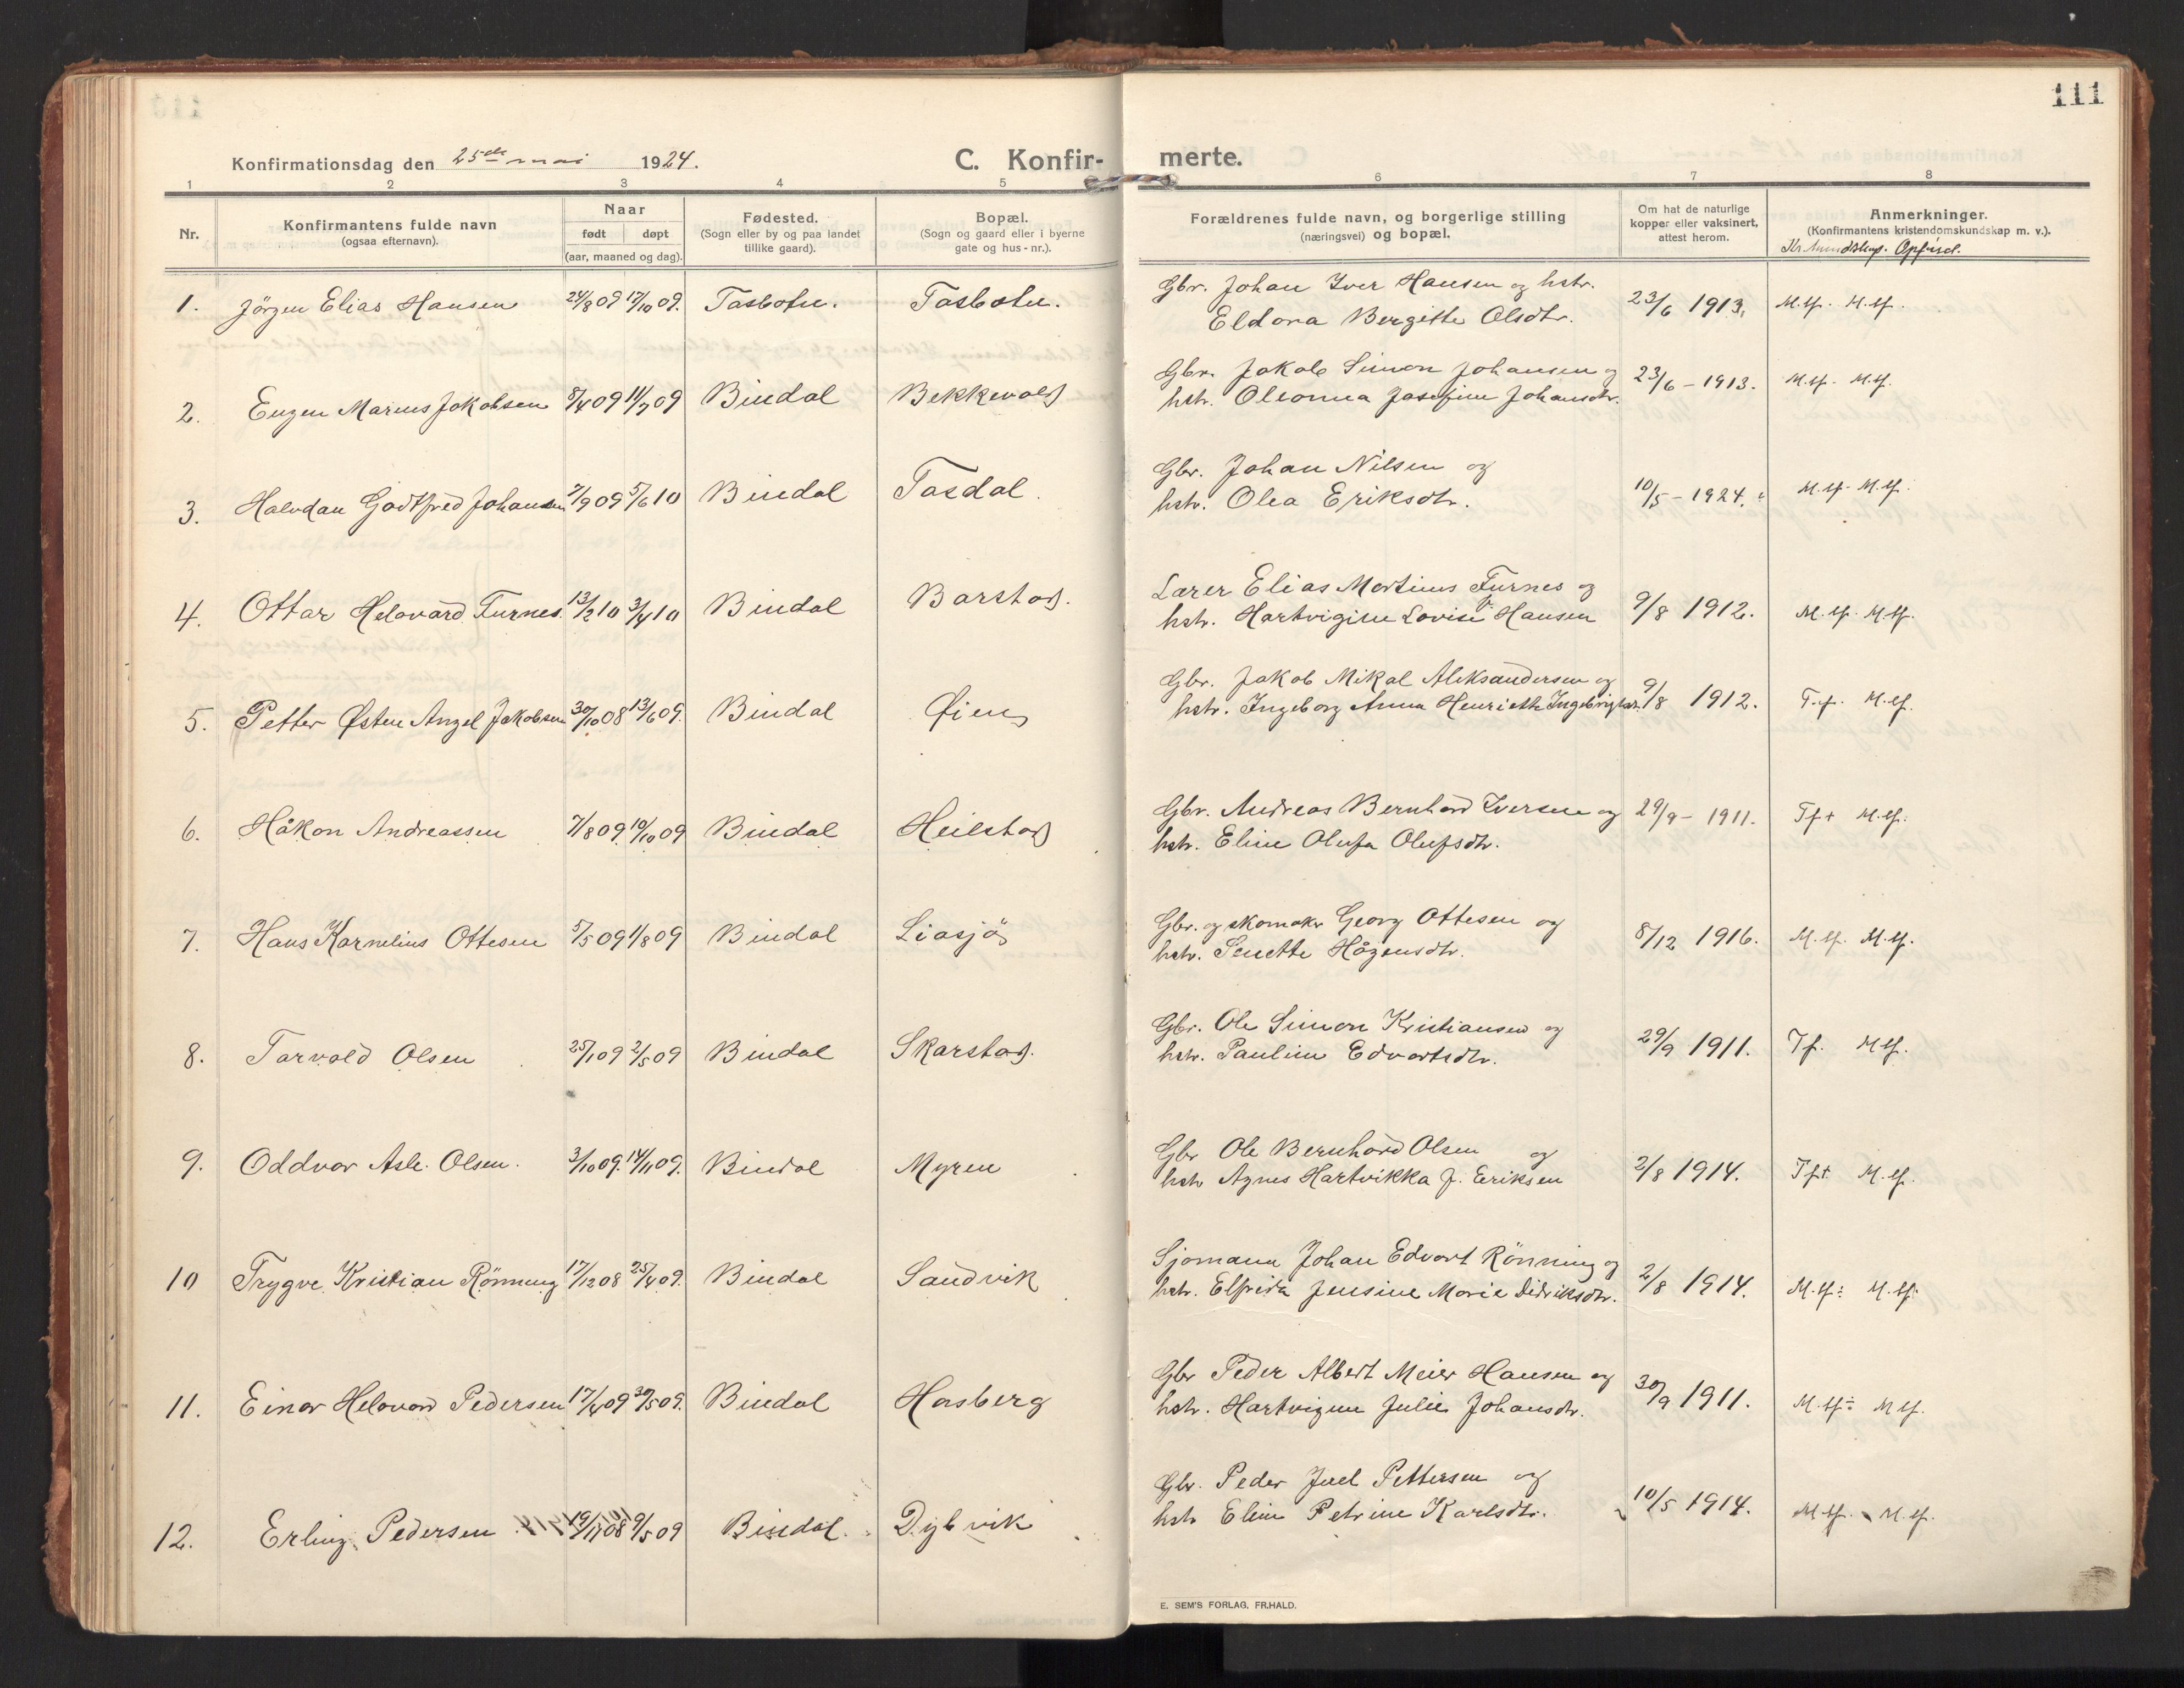 111
Konfirmationsdag den 25de mai 1924.
C. Konfir- merte.
1 2 3 4 5 6 7 8
Nr.
Konfirmantens fulde navn
(ogsaa efternavn).
Naar
født døpt
(aar, maaned og dag).
Fødested.
(Sogn eller by og paa landet
tillike gaard).
Bopæl.
(Sogn og gaard eller i byerne
gate og hus-nr.).
Forældrenes fulde navn, og borgerlige stilling
(næringsvei) og bopæl.
Om hat de naturlige
kopper eller vaksinert,
attest herom.
Anmerkninger.
(Konfirmantens kristendomskundskap m. v.).
Kr. kundskap. Opførsel.
1. Jörgen Elias Hansen 24/8 09 17/10 09. Tasbotn. Tasbotn.
Gbr. Johan Iver Hansen og hstr.
Eldora Bergitte Olsdtr. 23/6 1913. M.tf. M.tf.
2. Eugen Marius Jakobsen 8/4 09 11/7 09 Bindal Bekkevold
Gbr. Jakob Simon Johansen og
hstr. Oleonna Josefine Johansdtr. 23/6 - 1913. M.tf. M.tf.
3. Halvdan Godtfred Johansen 7/9 09 5/6 10 Bindal Tosdal.
Gbr. Johan Nilsen og
hstr. Olea Eriksdtr. 10/5 - 1924. M.tf. M.tf.
4. Ottar Helovard Furnes. 13/2 10 3/4 10 Bindal Barstad.
Lærer Elias Martinus Furnes og
hstr. Hartvigine Lovise Hansen 9/8 1912. M.tf. M.tf.
5. Petter Østen Angel Jakobsen 30/10 08 13/6 09. Bindal Øien
Gbr. Jakob Mikal Aleksandersen og
hstr. Ingeborg Anna Henriette Ingebrigtsdr. 9/8 1912. T.f. M.tf.
6. Håkon Andreassen 7/8 09 10/10 09 Bindal Heilstad
Gbr. Andreas Bernhard Iversen og
hstr. Eline Olufa Olufsdtr. 29/9 - 1911. Tf+ M.tf.
7. Hans Kornelius Ottesen 5/5 09 1/8 09 Bindal Liasjö
Gbr. og skomaker Georg Ottesen og
hstr. Senette Hågensdtr. 8/12 1916. M.tf. M.tf.
8. Torvald Olsen 25/1 09 2/5 09 Bindal Skarstad.
Gbr. Ole Simon Kristiansen og
hstr. Pauline Edvartsdtr. 29/9 1911. Tf. M.tf.
9. Oddvar Asle Olsen. 3/10 09. 14/11 09. Bindal Myren
Gbr Ole Bernhard Olsen og
hstr Agnes Hartvikka J. Eriksen 2/8 1914. Tf+ M.tf.
10 Trygve Kristian Rönning 17/12 08 25/4 09. Bindal Sandvik
Sjømann Johan Edvart Rönning og
hstr. Elfrida Jensine Marie Didriksdtr. 2/8 1914. M.tf÷ M.tf.
11. Einar Helovard Pedersen 17/4 09 30/5 09. Bindal Horsberg
Gbr Peder Albert Meier Hansen og
hstr. Hartvigine Julie Johansdtr. 30/9 1911. M.tf÷ M.tf.
12. Erling Pedersen 19/11 08 9/5 09 Bindal. Dybvik
Gbr. Peder Juel Pettersen og
hstr Eline Petrine Karlsdtr. 10/5 1914. M.tf. M.tf.
E. SEM'S FORLAG, FR.HALD.